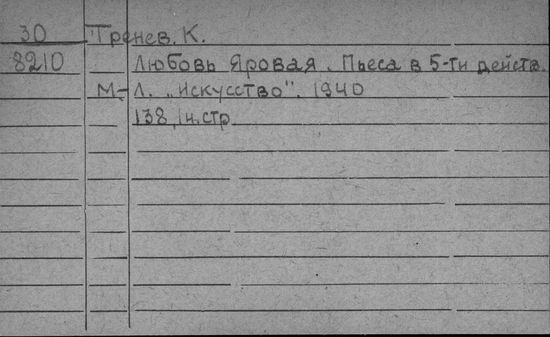 30 Тренев. К.
8210 Любовь Яровая. Пьеса в 5-ти действ.
М-Л. „Искусство". 1940
138, 1н.стр.